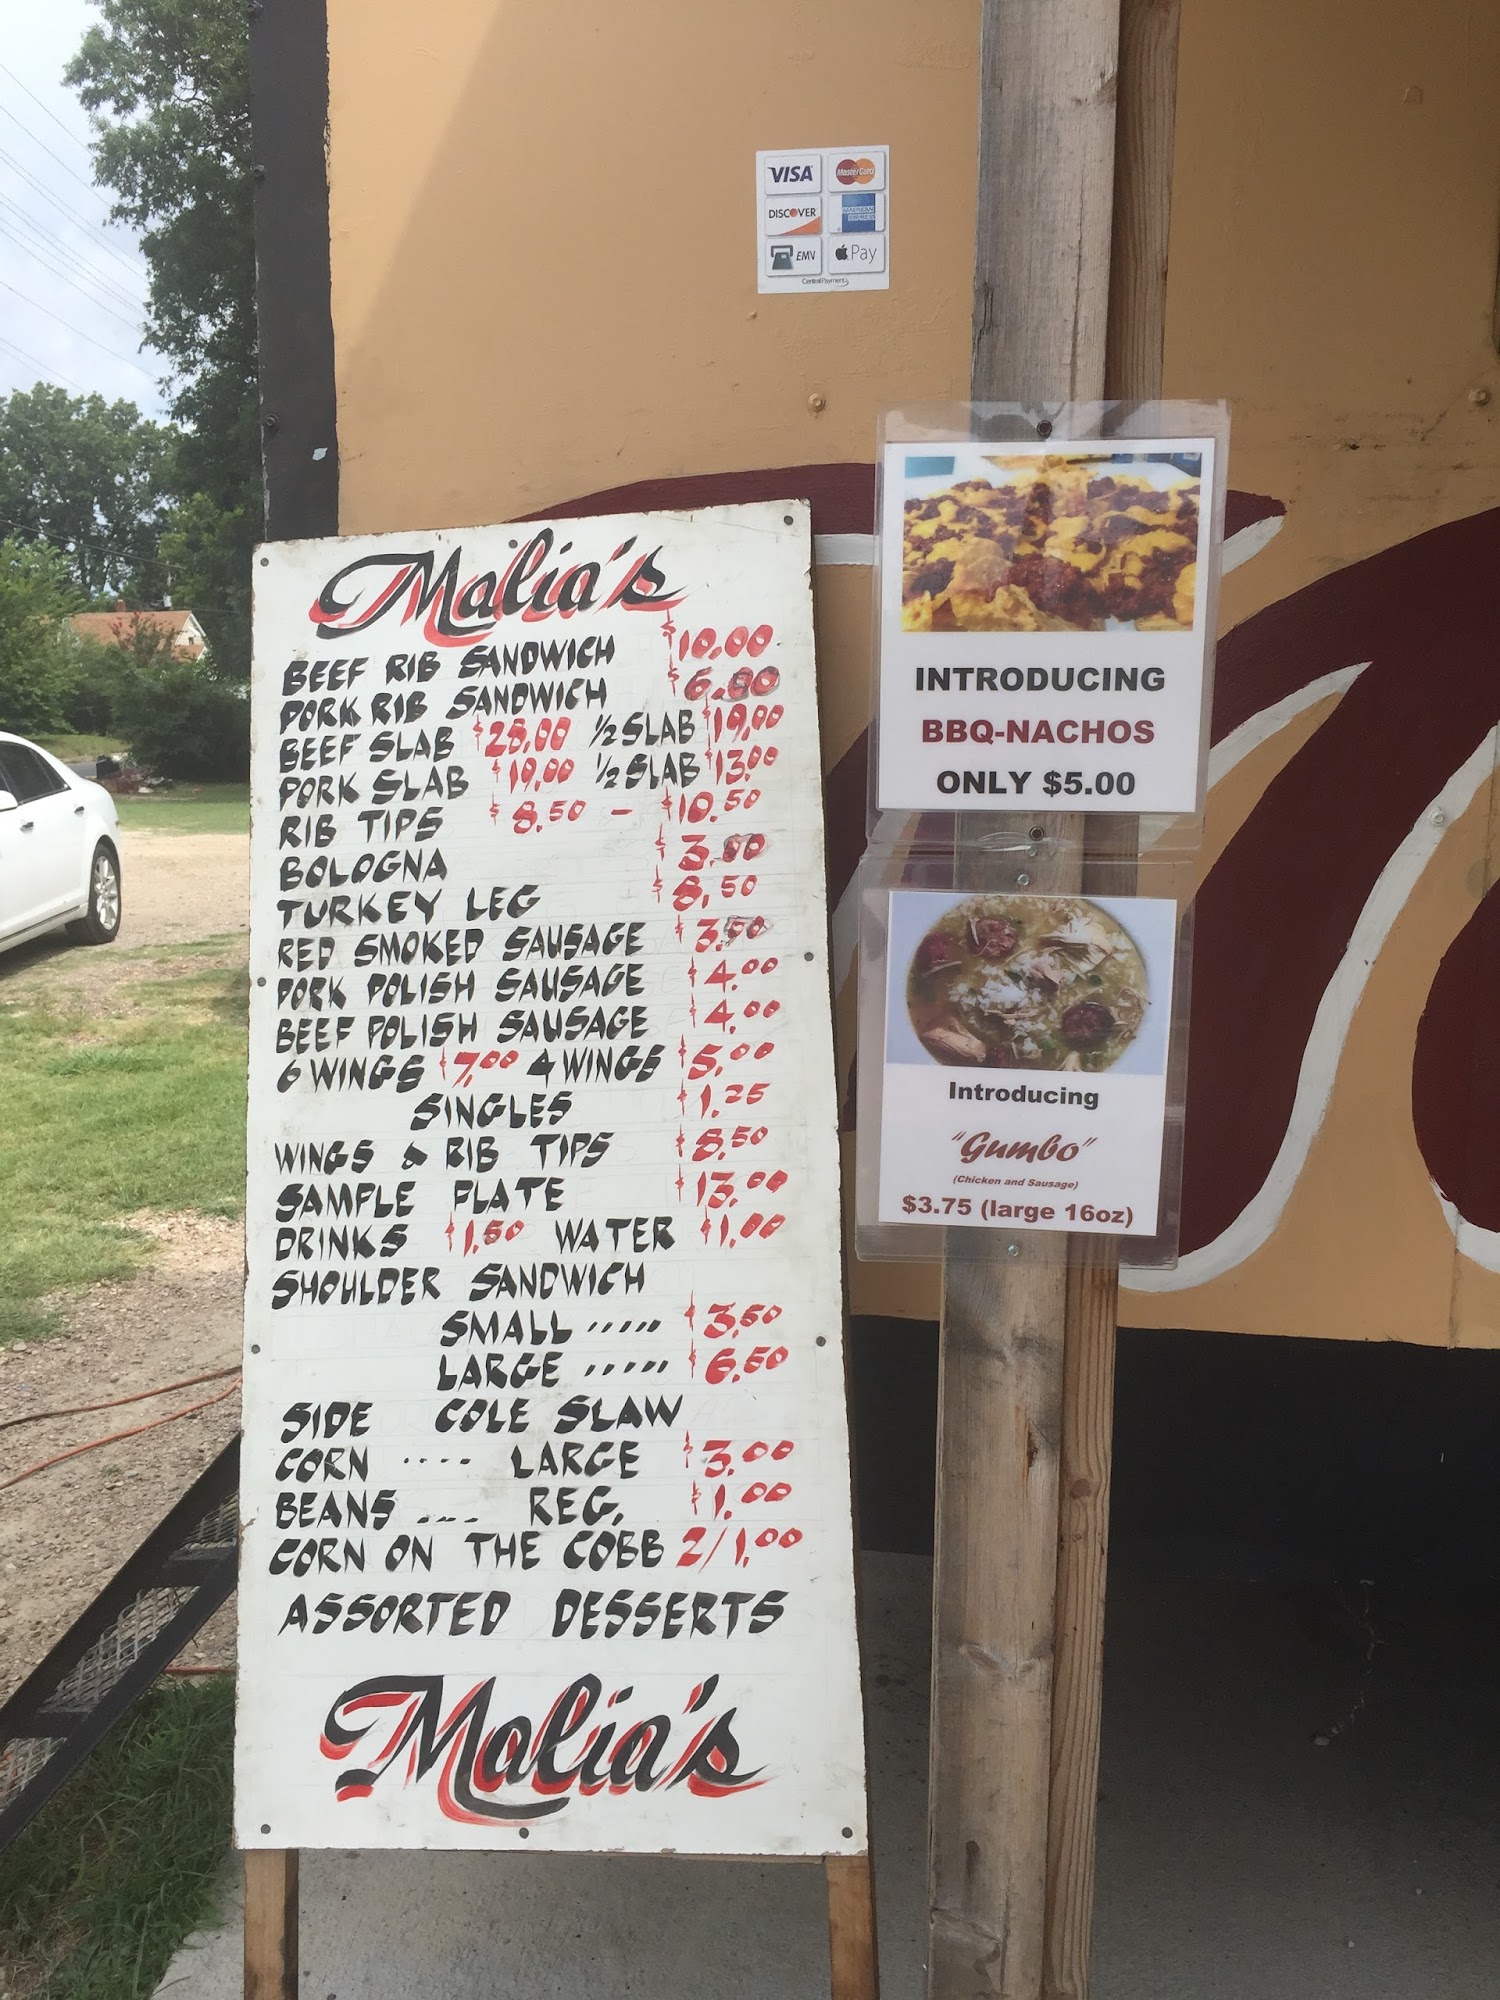 VISA MasterCard
DISCOVER AMERICAN EXPRESS
EMV Pay
CentralPayment
Malia's
BEEF RIB SANDWICH $10.00
PORK RIB SANDWICH $6.00
BEEF SLAB $28.00 1/2 SLAB $19.00
PORK SLAB $19.00 1/2 SLAB $13.00
RIB TIPS $8.50 - $10.50
BOLOGNA $3.00
TURKEY LEG $8.50
RED SMOKED SAUSAGE $3.50
PORK POLISH SAUSAGE $4.00
BEEF POLISH SAUSAGE $4.00
6 WINGS $7.00 4 WINGS $5.00
SINGLES $1.25
WINGS & RIB TIPS $8.50
SAMPLE PLATE $13.00
DRINKS $1.50 WATER $1.00
SHOULDER SANDWICH
SMALL ..... $3.50
LARGE ..... $6.50
SIDE COLE SLAW
CORN .... LARGE $3.00
BEANS .... REG. $1.00
CORN ON THE COBB 2/1.00
ASSORTED DESSERTS
Malia's
INTRODUCING
BBQ-NACHOS
ONLY $5.00
Introducing
"Gumbo"
(Chicken and Sausage)
$3.75 (large 16oz)